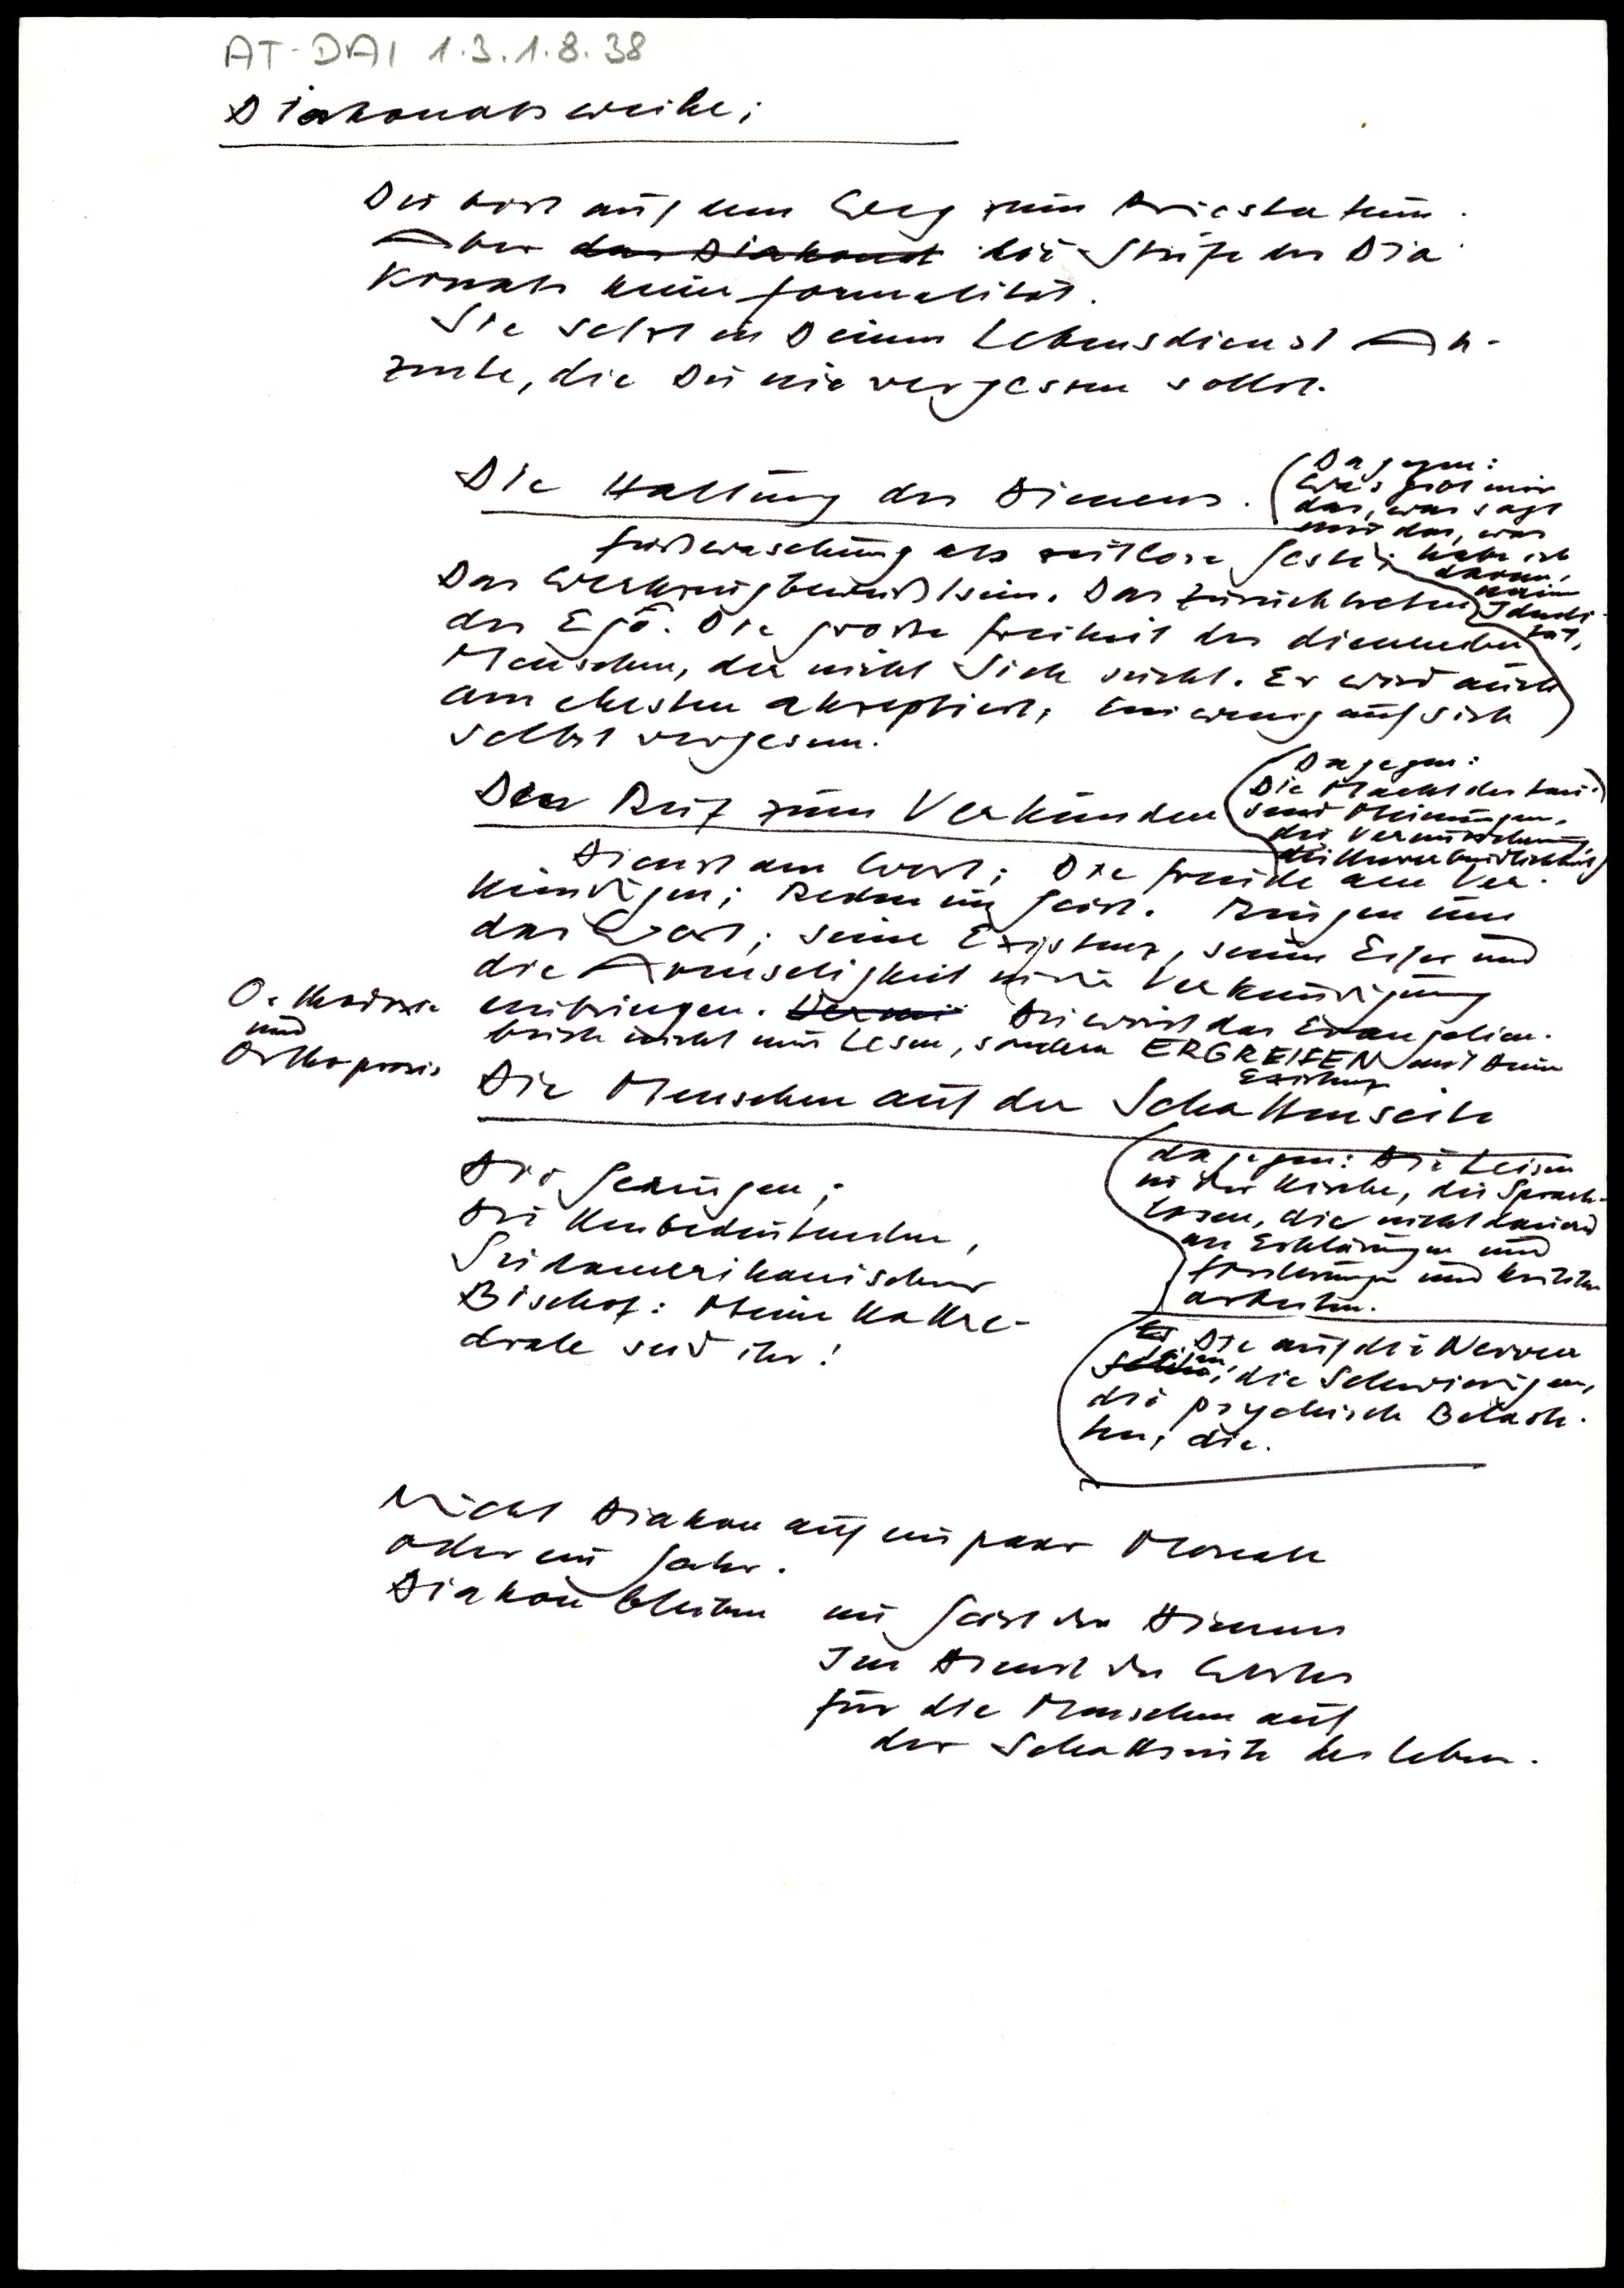 AT-DAI 1.3.1.8.38
Diakonatsweihe;
Du bist auf dem Weg zum Priestertum.
Aber das Diakonat die Stufe des Dia
konats keine Formalität.
Sie setzt in Deinem Lebensdienst Ak-
zente, die Du nie vergessen sollst.
Die Haltung des Dienens.
(Dagegen:
Was gibt mir
das, was sagt
mir das, was
habe ich
davon,
meine
Identi-
tät,
Fußwaschung als zeitlose Geste:
Das Werkzeugbewußtsein. Das Zurücktreten
des Ego. Die große Freiheit des dienenden
Menschen, der nicht Sich sucht. Er wird auch
am ehesten akzeptiert, ein wenig auf sich
selbst vergessen.
Der Ruf zum Verkünden
(Dagegen:
Die Macht der tau-
send Meinungen,
die Vermischung,
die Unverbindlichkeit)
Dienst am Wort; Die Freude am Ver-
kündigen; Reden im Geist. Ringen um
das Wort; seine Existenz, seinen Eifer und
die Armseligkeit in die Verkündigung
einbringen. Du wirst das Evangelien-
buch nicht nur Lesen, sondern ERGREIFEN mit Deiner
Existenz
Orthodoxie
und
Orthopraxis
Die Menschen auf der Schattenseite
Die Geringen;
Die Unbedeutenden,
Südamerikanischer
Bischof: Meine Kathe-
drale seid ihr!
(dagegen: Die Leisen
in der Kirche, die Sprach-
losen, die nicht dauernd
an Erklärungen und
Forderungen und Kritiken
arbeiten.
Die auf die Nerven
gehen, die Schwierigen,
die psychisch Belaste-
ten, die.
Nicht Diakon auf ein paar Monate
oder ein Jahr.
Diakon bleiben im Geist des Dienens
Im Dienst des Wortes
für die Menschen auf
der Schattseite des Lebens.